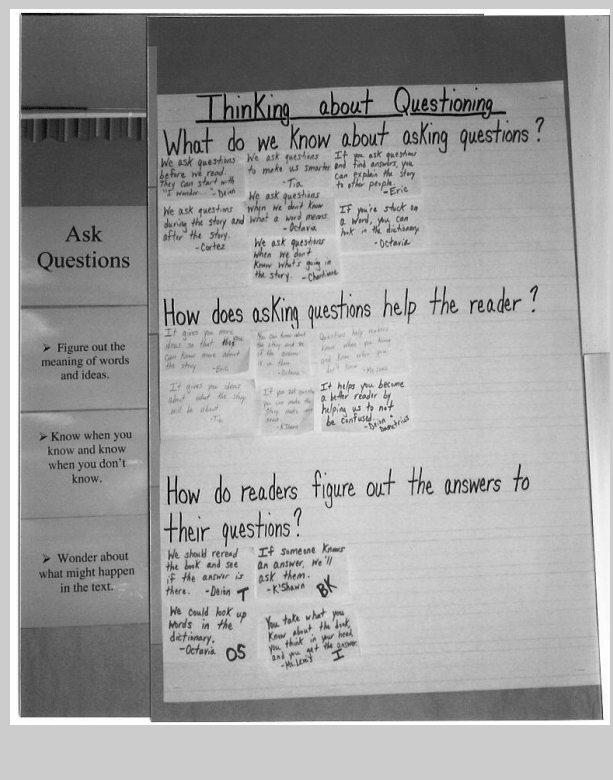 Ask
Questions
➢ Figure out the
meaning of words
and ideas.
➢ Know when you
know and know
when you don't
know.
➢ Wonder about
what might happen
in the text.
Thinking about Questioning
What do we know about asking questions?
We ask questions
before we read.
They can start with
"I wonder..." -Deion
We ask questions
to make us smarter
-Tia
If you ask question
and find answers, you
can explain the story
to other people.
-Eric
We ask questions
during the story and
after the story.
-Cortez
We ask questions
when we don't know
what a word means.
-Octavia
If you're stuck on
a word, you can
look in the dictionary.
-Octavia
We ask questions
when we don't
know what's going in
the story.
How does asking questions help the reader?
It gives you more
ideas so that
can know more about
the story -Eric
You can know about
the story and see
if the answer
is in there
-Octavia
Question help readers
know when you know
and know when you
don't know
It gives you ideas
about what the story
will be about
-Tia
If you ask questions
you can make the
story make more
sense
-K'Shawn
It helps you become
a better reader by
helping us to not
be confused.
-Deion
Demetrius
How do readers figure out the answers to
their questions?
We should reread
the book and see
if the answer is
there. -Deion T
If someone knows
an answer, we'll
ask them.
-K'Shawn BK
We could look up
words in the
dictionary.
-Octavia OS
You take what you
know about the book,
you think in your head,
and you get the answer.
I